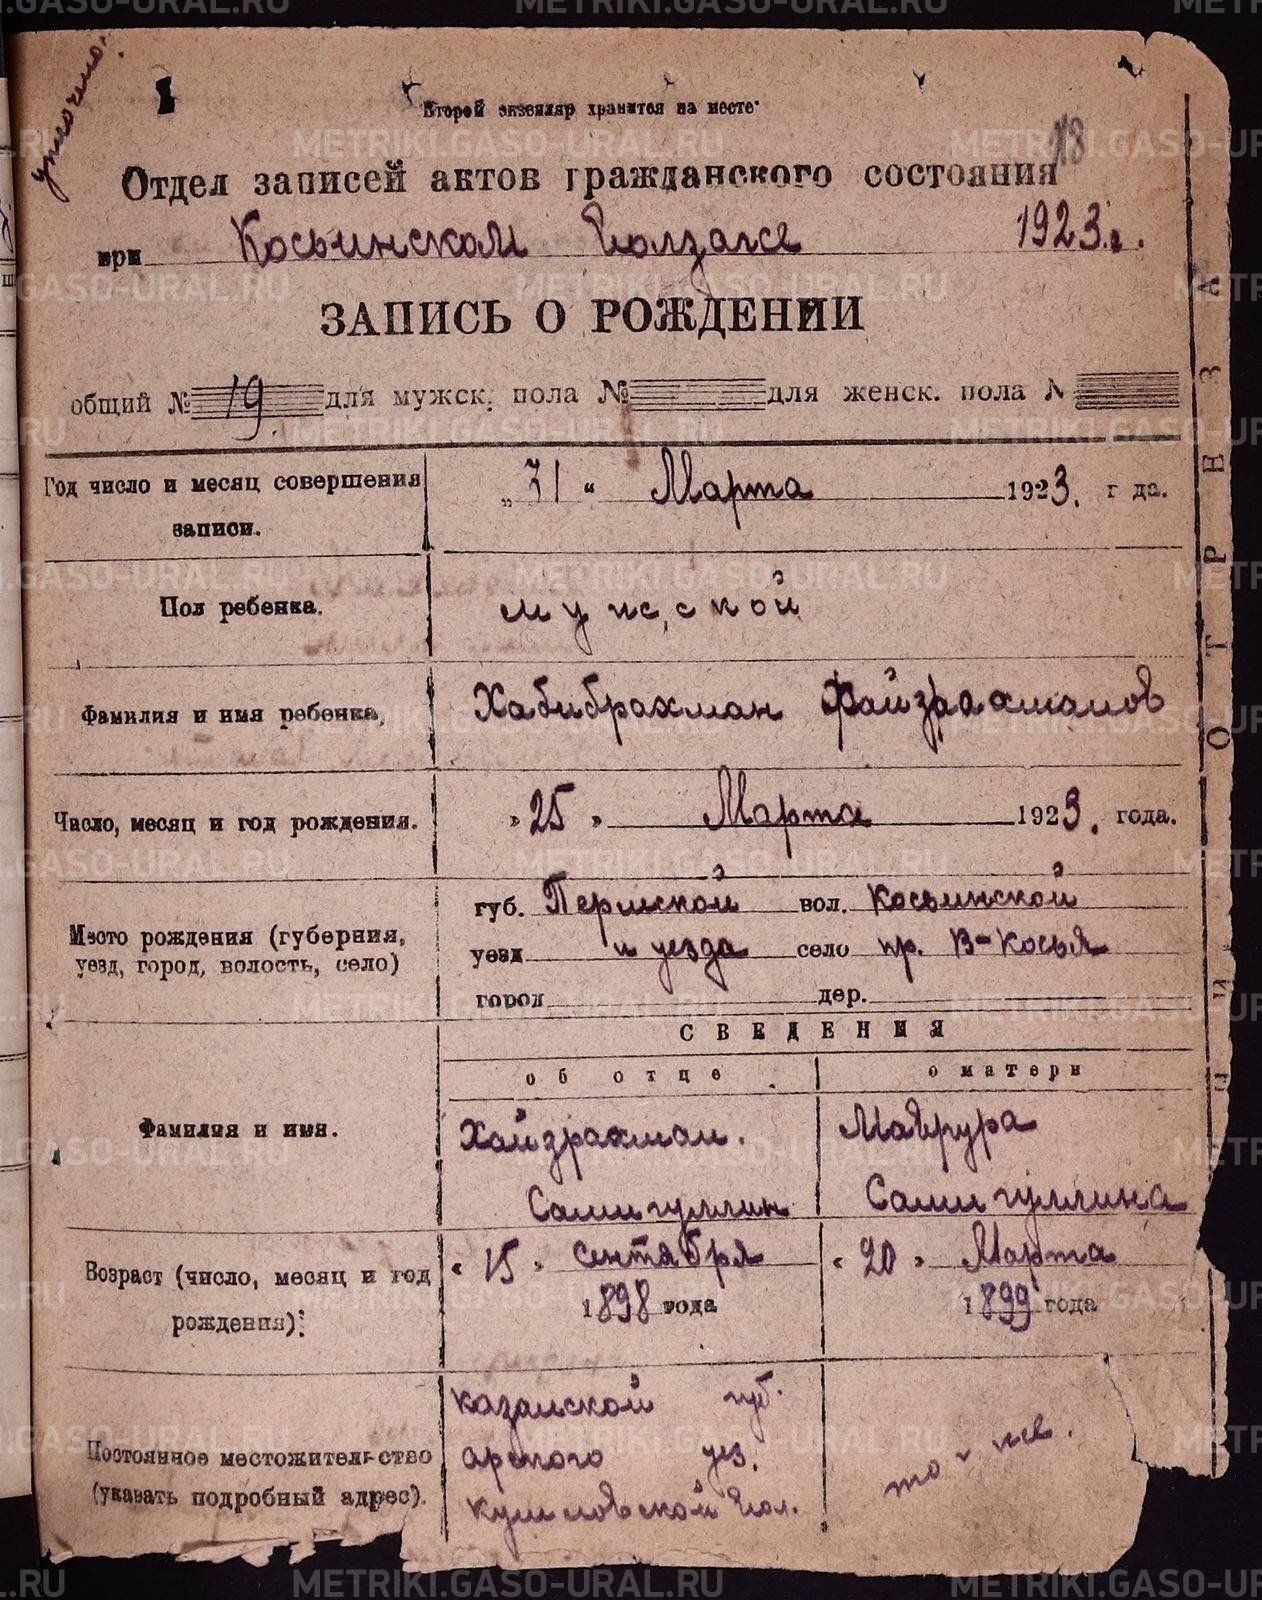 уточчено.
Второй экземпляр хранится на месте
118
Отдел записей актов гражданского состояния
при Косьинском Волзагсе 1923 г.
ЗАПИСЬ О РОЖДЕНИИ
общий № 19. для мужск. пола № для женск. пола №
Год число и месяц совершения записи.
„31“ Марта 1923. г да.
Пол ребенка.
мужской
Фамилия и имя ребенка,
Хабибрахман Файзрахманов
Число, месяц и год рождения.
„25„ Марта 1923. года.
Место рождения (губерния, уезд, город, волость, село)
губ. Пермской вол. Косьинской
уезд и уезда село пр. В-Косья
город дер.
СВЕДЕНИЯ
об отце о матери
Фамилия и имя.
Хайзрахман. Самигуллин
Маврура Самигуллина
Возраст (число, месяц и год рождения):
«15» Сентября 1898 года
«20» Марта 1899 года
Постоянное местожительство (указать подробный адрес).
Казанской губ.
Арского уез.
Вол.
то-же.
ОТРЕЗНА
METRIKI.GASO-URAL.RU